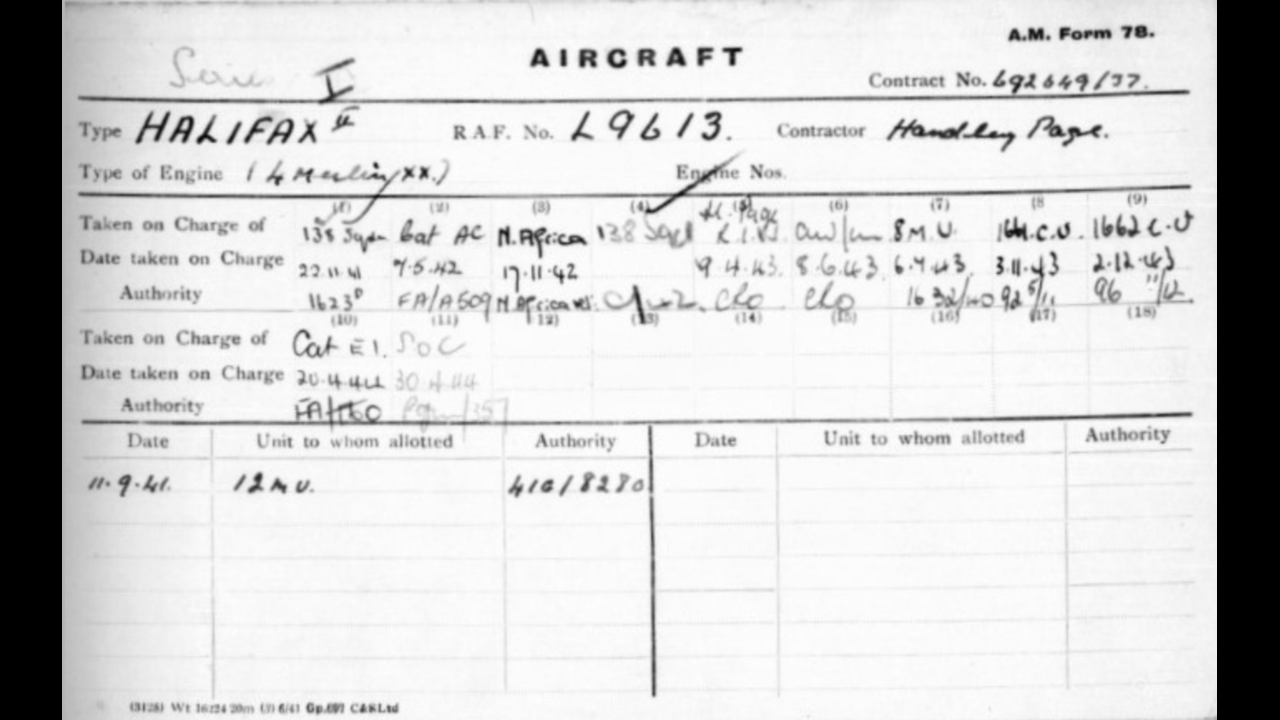 A.M. Form 78.
AIRCRAFT
I
Contract No. 692649/37.
Type HALIFAX II R.A.F. No. L9613. Contractor Handley Page.
Type of Engine (4 Merlin XX.) Engine Nos.
(1) (2) (3) (4) (5) (6) (7) (8 (9)
H. Page
Taken on Charge of 138 Sqdn Cat AC N. Africa 138 Sqd R.I.W. 8 M.U. C.U. 1662 C.U
Date taken on Charge 22.11.41 7.5.42 17.11.42 9.4.43. 8.6.43. 6.7.43. 3.11.43 2.12.43
Authority 1623 FA/A509 N Africa
(10) (11) 12) (13) (14) (15) (16) (17) (18)
Taken on Charge of Cat E1. SOC
Date taken on Charge 20.4.44 30.4.44
Authority
Date Unit to whom allotted Authority Date Unit to whom allotted Authority
11.9.41. 12 M U. 41G/8280
(3128) Wt 16224 20m (3) 6/41 Gp.697 C&RLtd